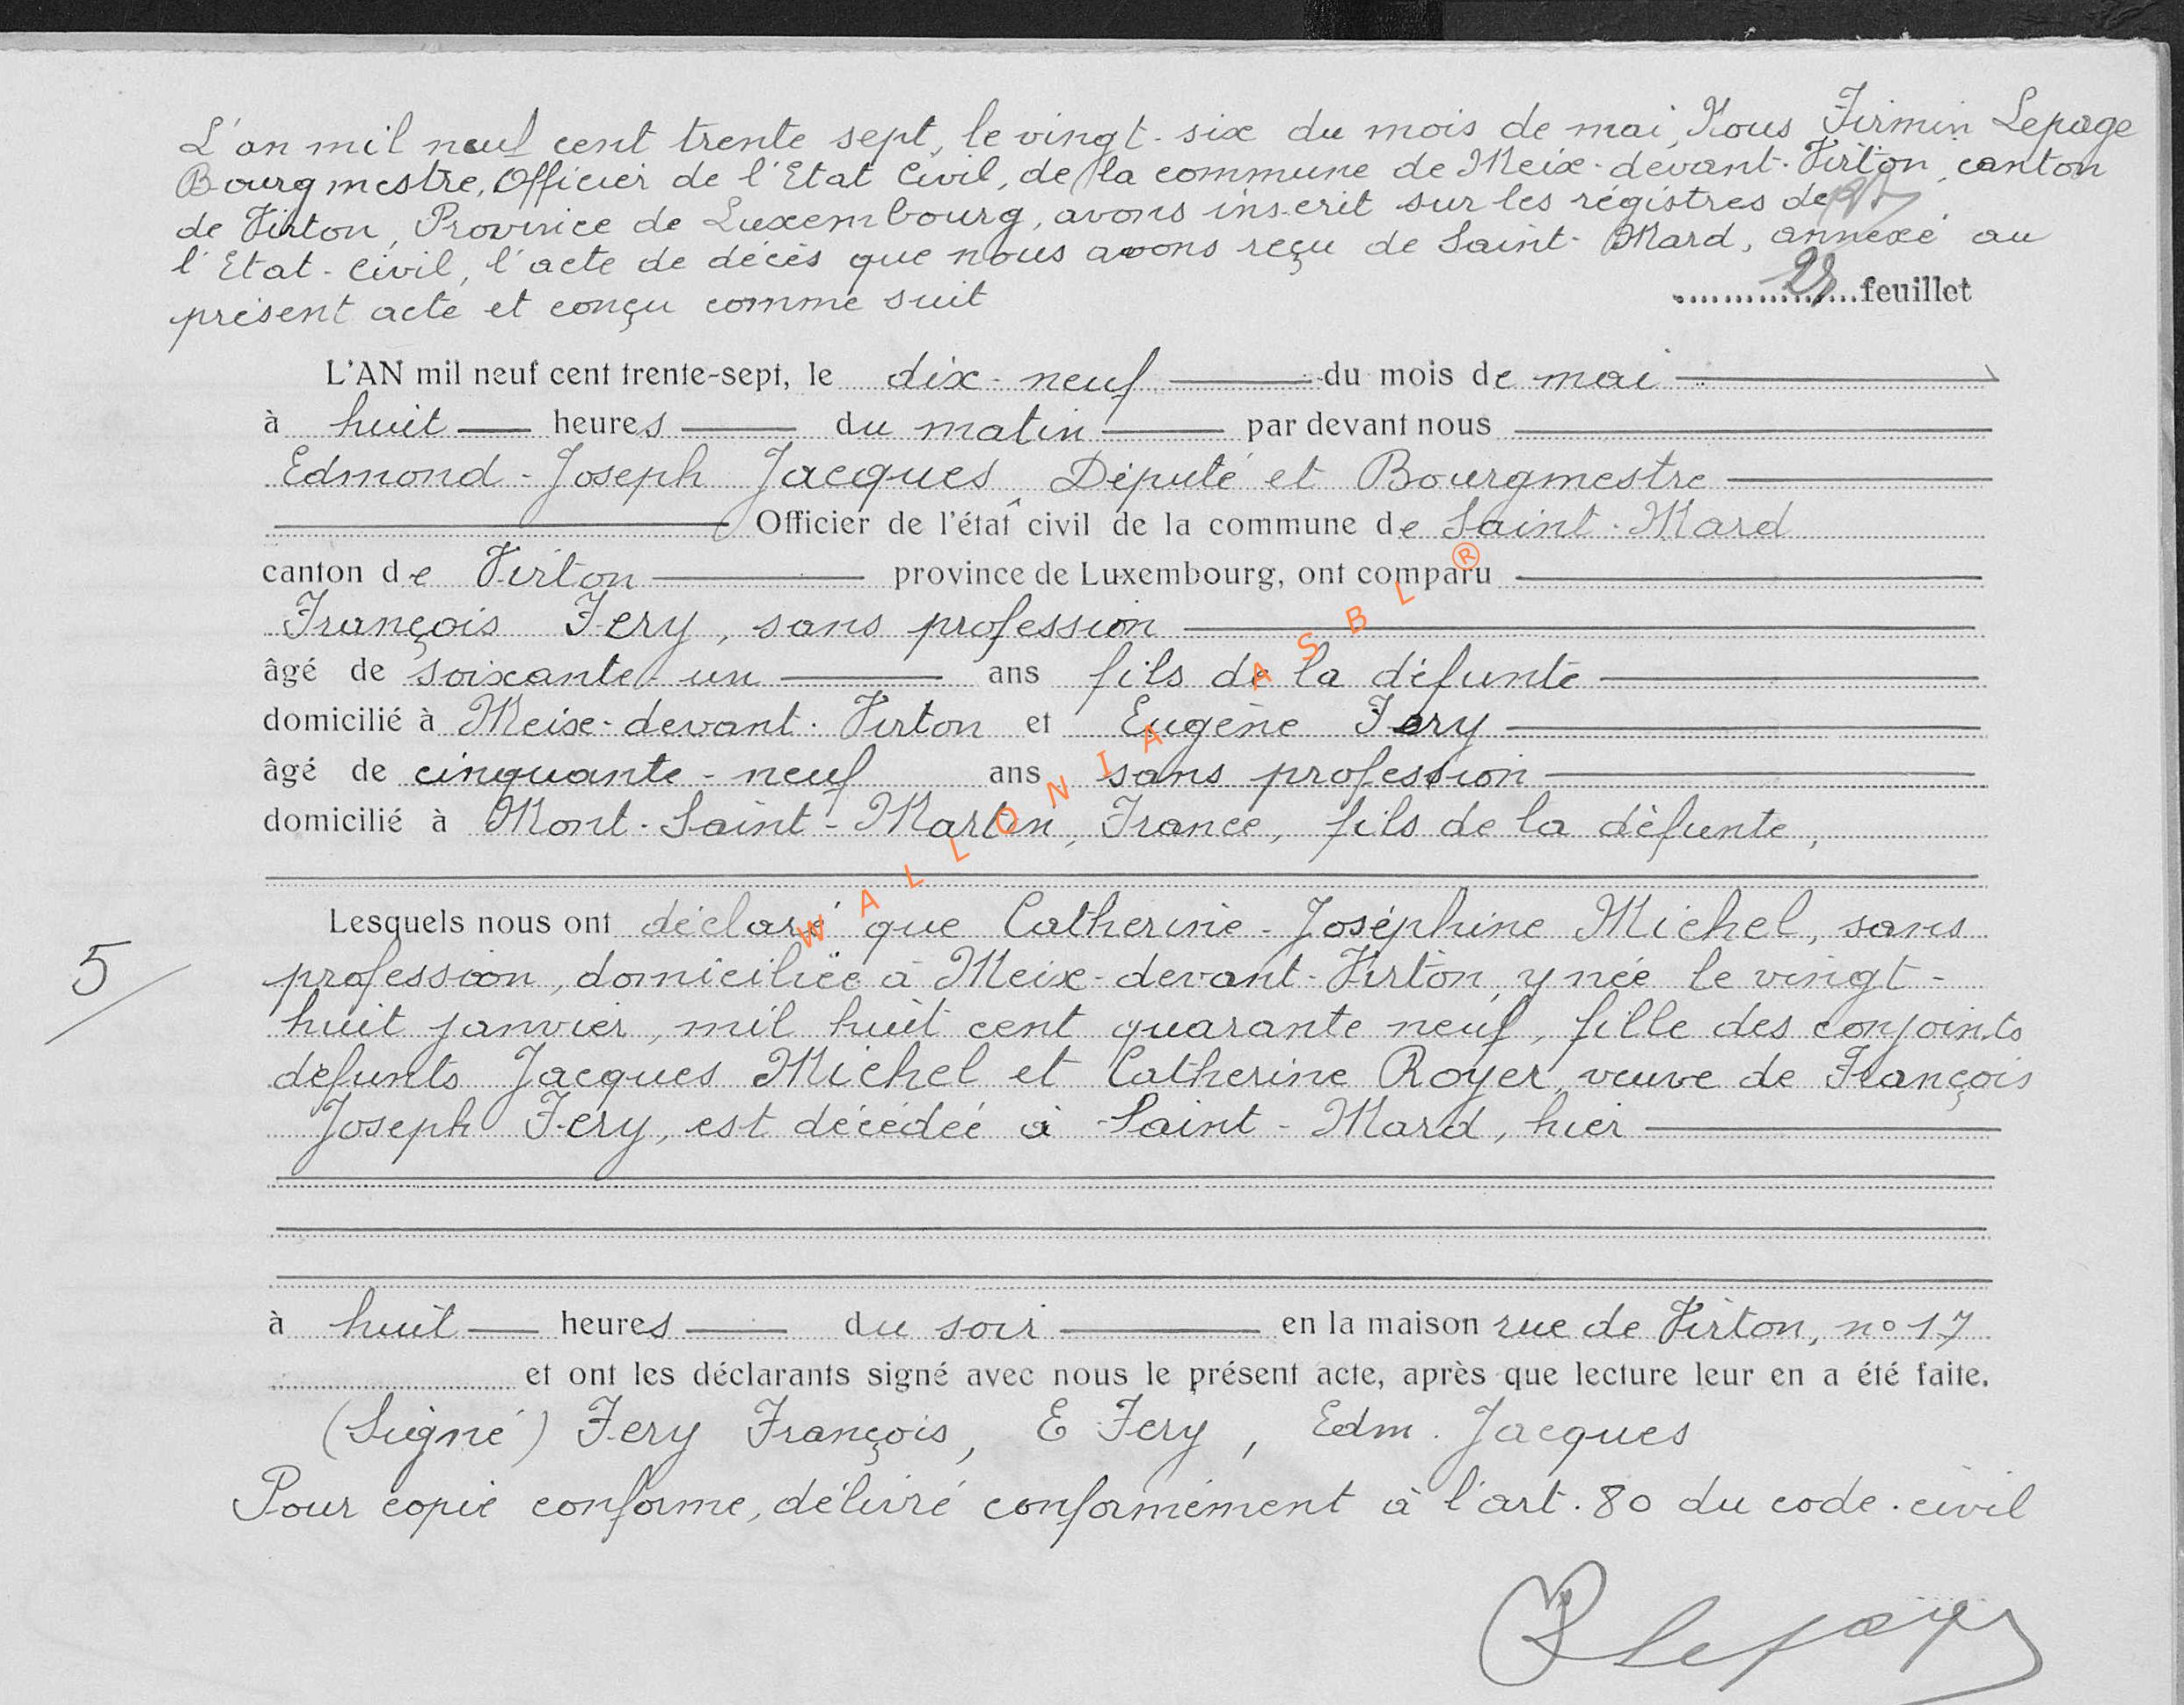 L'an mil neuf cent trente sept, le vingt-six du mois de mai, Nous Firmin Lepage
Bourgmestre, Officier de l'Etat Civil, de la commune de Meix-devant-Virton, canton
de Virton, Province de Luxembourg, avons inscrit sur les régistres de
l'Etat-Civil, l'acte de décès que nous avons reçu de Saint-Mard, annexé au
présent acte et conçu comme suit
feuillet
L'AN mil neuf cent trente-sept, le dix-neuf du mois de mai
à huit heures du matin par devant nous
Edmond-Joseph Jacques, Député et Bourgmestre
Officier de l'état civil de la commune de Saint-Mard
canton de Virton province de Luxembourg, ont comparu
François Fery, sans profession
âgé de soixante un ans fils de la défunte
domicilié à Meix-devant-Virton et Eugène Fery
âgé de cinquante-neuf ans sans profession
domicilié à Mont-Saint-Martin, France, fils de la défunte,
Lesquels nous ont déclaré que Catherine-Joséphine Michel, sans
5/ profession, domiciliée à Meix-devant-Virton, y née le vingt-
huit janvier, mil huit cent quarante neuf, fille des conjoints
défunts Jacques Michel et Catherine Royer, veuve de François
Joseph Fery, est décédée à Saint-Mard, hier
à huit heures du soir en la maison rue de Virton, n° 17
et ont les déclarants signé avec nous le présent acte, après que lecture leur en a été faite.
(Signé) Fery François, E Fery, Edm. Jacques
Pour copie conforme, délivré conformément à l'art. 80 du code civil
WALLONIA ASBL ®